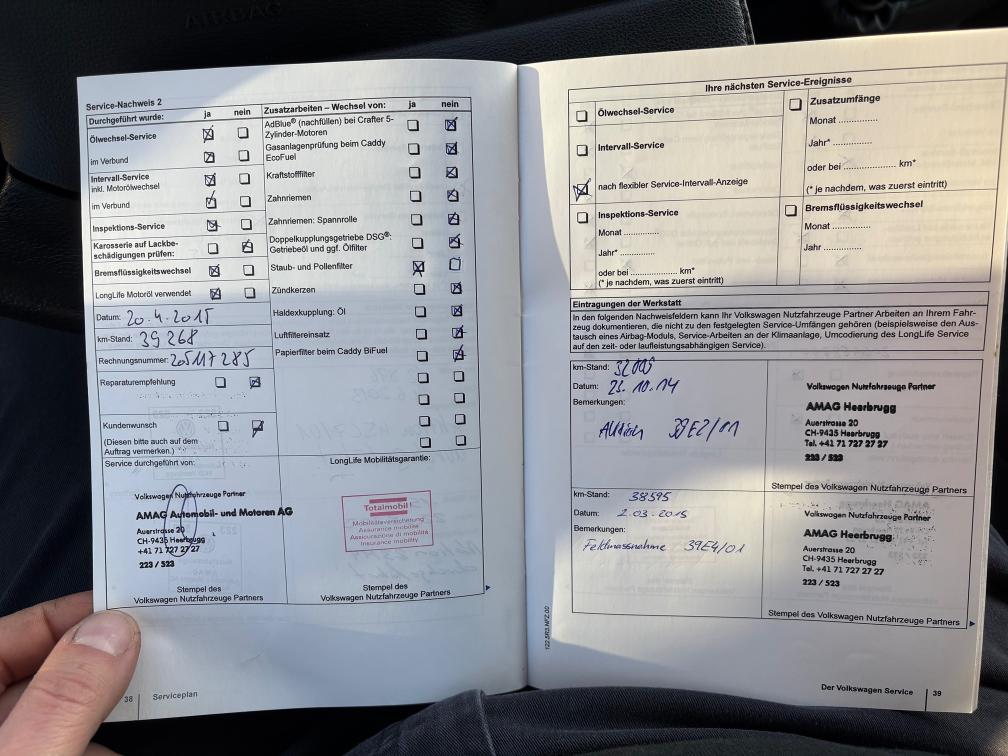 AIRBAG
Service-Nachweis 2
Durchgeführt wurde: ja nein
Ölwechsel-Service
im Verbund
Intervall-Service
inkl. Motorölwechsel
im Verbund
Inspektions-Service
Karosserie auf Lackbe-
schädigungen prüfen:
Bremsflüssigkeitswechsel
LongLife Motoröl verwendet
Datum: 20.4.2015
km-Stand: 39 268
Rechnungsnummer: 20517285
Reparaturempfehlung
Kundenwunsch
(Diesen bitte auch auf dem
Auftrag vermerken.)
Service durchgeführt von:
Volkswagen Nutzfahrzeuge Partner
AMAG Automobil- und Motoren AG
Auerstrasse 20
CH-9435 Heerbrugg
+41 71 727 27 27
223 / 523
Stempel des
Volkswagen Nutzfahrzeuge Partners
Zusatzarbeiten – Wechsel von: ja nein
AdBlue® (nachfüllen) bei Crafter 5-
Zylinder-Motoren
Gasanlagenprüfung beim Caddy
EcoFuel
Kraftstofffilter
Zahnriemen
Zahnriemen: Spannrolle
Doppelkupplungsgetriebe DSG®:
Getriebeöl und ggf. Ölfilter
Staub- und Pollenfilter
Zündkerzen
Haldexkupplung: Öl
Luftfiltereinsatz
Papierfilter beim Caddy BiFuel
LongLife Mobilitätsgarantie:
Totalmobil!
Mobilitätsversicherung
Assurance mobilité
Assicurazione di mobilità
Insurance mobility
Stempel des
Volkswagen Nutzfahrzeuge Partners
38 Serviceplan
Ihre nächsten Service-Ereignisse
Ölwechsel-Service
Intervall-Service
nach flexibler Service-Intervall-Anzeige
Inspektions-Service
Monat ............
Jahr* ............
oder bei ................ km*
(* je nachdem, was zuerst eintritt)
Zusatzumfänge
Monat ..............
Jahr* .............
oder bei ................ km*
(* je nachdem, was zuerst eintritt)
Bremsflüssigkeitswechsel
Monat ..............
Jahr .............
Eintragungen der Werkstatt
In den folgenden Nachweisfeldern kann Ihr Volkswagen Nutzfahrzeuge Partner Arbeiten an Ihrem Fahr-
zeug dokumentieren, die nicht zu den festgelegten Service-Umfängen gehören (beispielsweise den Aus-
tausch eines Airbag-Moduls, Service-Arbeiten an der Klimaanlage, Umcodierung des LongLife Service
auf den zeit- oder laufleistungsabhängigen Service).
km-Stand:
Datum: 23.10.14
Bemerkungen:
39E2/01
Volkswagen Nutzfahrzeuge Partner
AMAG Heerbrugg
Auerstrasse 20
CH-9435 Heerbrugg
Tel. +41 71 727 27 27
223 / 523
Stempel des Volkswagen Nutzfahrzeuge Partners
km-Stand: 38595
Datum: 2.03.2015
Bemerkungen:
Feldmassnahme 39E4/01
Volkswagen Nutzfahrzeuge Partner
AMAG Heerbrugg
Auerstrasse 20
CH-9435 Heerbrugg
Tel. +41 71 727 27 27
223 / 523
Stempel des Volkswagen Nutzfahrzeuge Partners
122.5R3.NFZ.00
Der Volkswagen Service 39